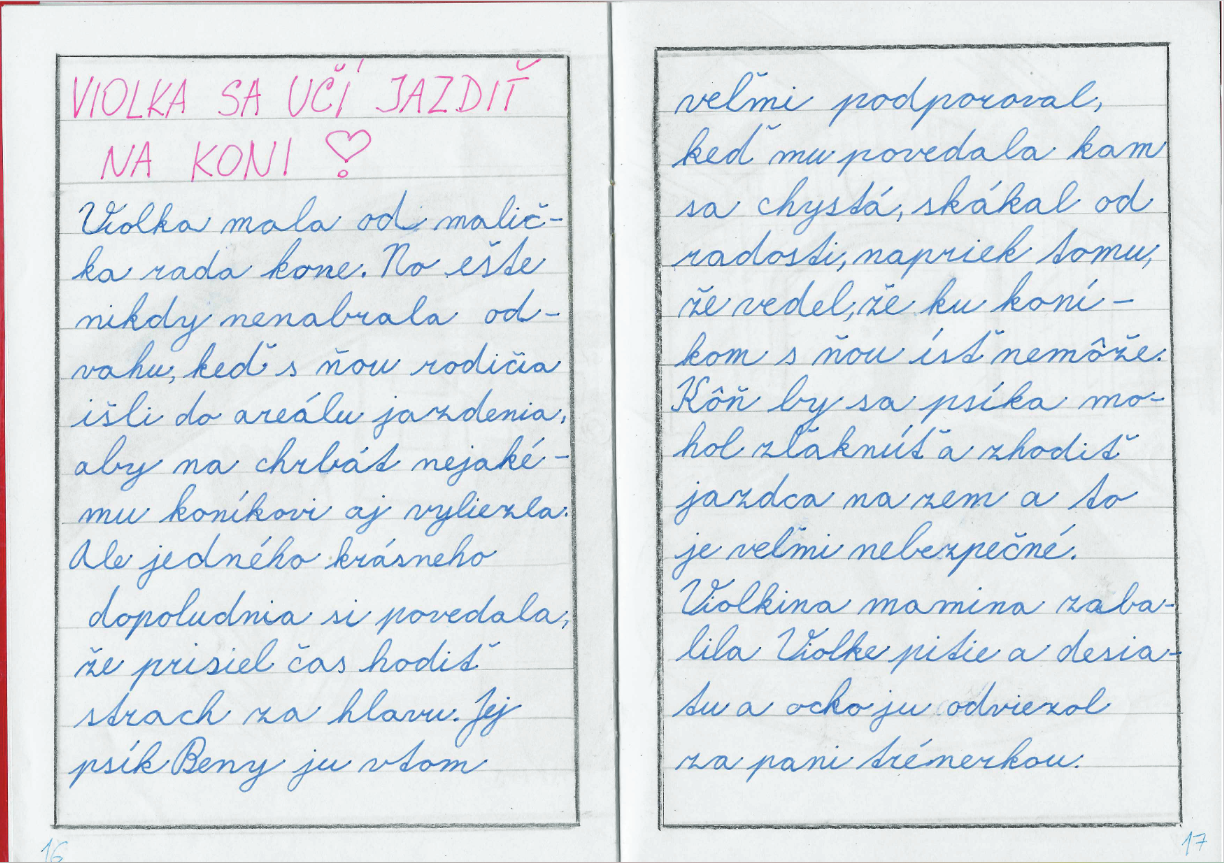 VIOLKA SA UČÍ JAZDIŤ
NA KONI
Violka mala od malič-
ka rada kone. No ešte
nikdy nenabrala od-
vahu, keď s ňou rodičia
išli do areálu jazdenia,
aby na chrbát nejaké-
mu koníkovi aj vyliezla.
Ale jedného krásneho
dopoludnia si povedala,
že prisiel čas hodiť
strach za hlavu. Jej
psík Beny ju v tom
16
veľmi podporoval,
keď mu povedala kam
sa chystá, skákal od
radosti, napriek tomu,
že vedel, že ku koní-
kom s ňou ísť nemôže.
Kôň by sa psíka mo-
hol zľaknúť a zhodiť
jazdca na zem a to
je veľmi nebezpečné.
Violkina mamina zaba-
lila Violke pitie a desia-
tu a ocko ju odviezol
za pani trénerkou.
17